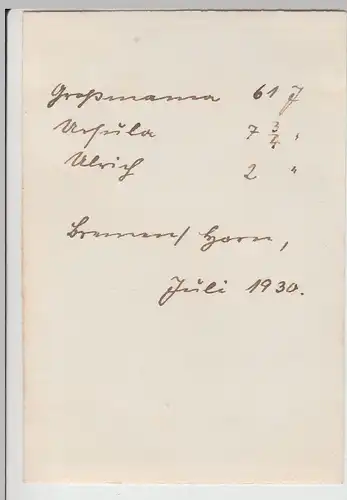 Großmama 61 J
Ursula 7 3/4 "
Ulrich 2 "
Bremen/Horn,
Juli 1930.